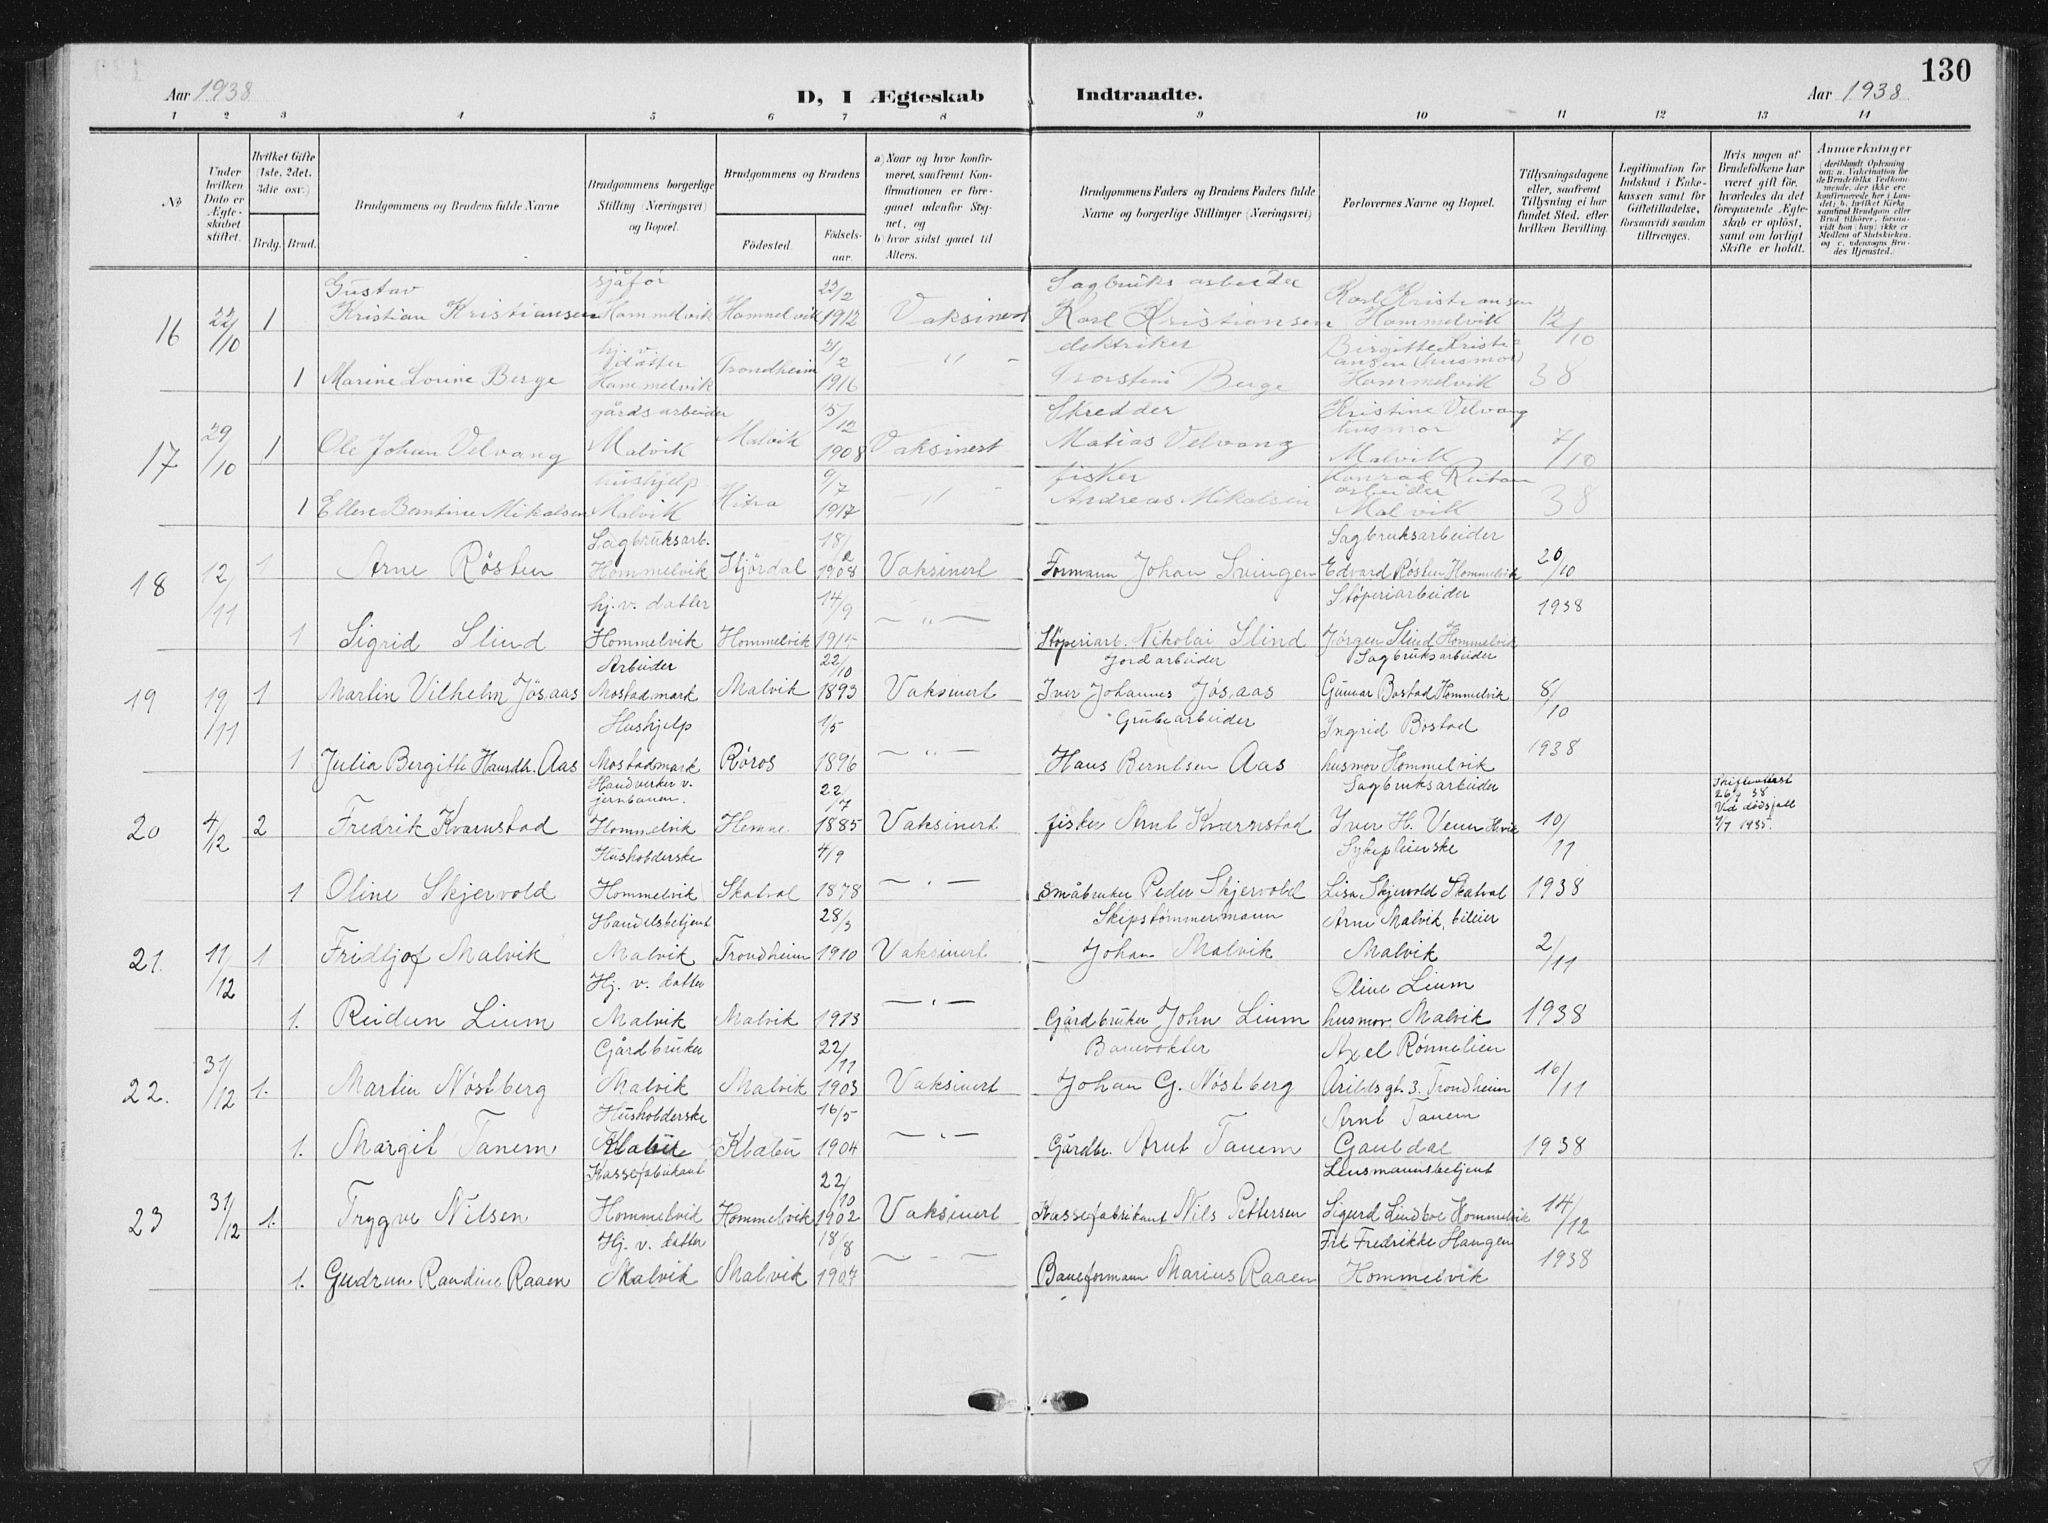 130
Aar 1938
D, I Ægteskab Indtraadte.
Aar 1938
1 2 3 4 5 6 7 8 9 10 11 12 13 14
No
Under hvilken Dato er Ægteskabet stiftet.
Hvilket Gifte (1ste, 2det, 3die osv.)
Brdg. Brud.
Brudgommens og Brudens fulde Navne
Brudgommens borgerlige Stilling (Næringsvei) og Bopæl.
Brudgommens og Brudens
Fødested. Fødselsaar.
a) Naar og hvor konfirmeret, saafremt Konfirmationen er foregaaet udenfor Sognet, og
b) hvor sidst gaaet til Alters.
Brudgommens Faders og Brudens Faders fulde Navne og borgerlige Stillinger (Næringsvei)
Forlovernes Navne og Bopæl.
Tillysningsdagene eller, saafremt Tillysning ei har fundet Sted, efter hvilken Bevilling.
Legitimation for Indskud i Enkekassen samt for Giftetilladelse, forsaavidt saadan tiltrænges.
Hvis nogen af Brudefolkene har været gift før, hvorledes da det foregaaende Ægteskab er opløst, samt om lovligt Skifte er holdt.
Anmærkninger
Gustav sjåfør 22/2 Sagbruksarbeider Karl Kristiansen
16 22/10 1 Kristian Kristiansen Hommelvik Hommelvik 1912 Vaksinert Karl Kristiansen Hommelvik 12/10
hj. v. datter 2/2 Birgitte Kristiansen (husmor)
1 Marine Lovine Berge Hommelvik Trondheim 1916 — " — Torstein Berge Hommelvik 38
gårdsarbeider 5/12 Skredder Kristine Velvang husmor
17 29/10 1 Ole Johan Velvang Malvik Malvik 1908 Vaksinert Matias Velvang Malvik 7/10
hushjelp 9/7 fisker Konrad arbeider
1 Ellen Berntine Mikalsen Malvik Hitra 1917 — " — Andreas Mikalsen Malvik 38
Sagbruksarb. 18/2 Sagbruksarbeider
18 12/11 1 Arne Rösten Hommelvik Stjördal 1908 Vaksinert Formann Johan Svingen Edvard Røsten Hommelvik 20/10
hj. v. datter 14/9 Støperiarbeider 1938
1 Sigrid Slind Hommelvik Hommelvik — " — Støperiarb. Nikolai Slind Jørgen Slind Hommelvik
Arbeider 22/10 Jordarbeider Sagbruksarbeider
19 19/11 1 Martin Vilhelm Jøsaas Mostadmark Malvik 1893 Vaksinert Iver Johannes Jøsaas Gunnar Bostad Hommelvik 8/10
Hushjelp 1/5 Grubearbeider Ingrid Bostad 1938
1 Julia Bergitte Hansdtr. Aas Mostadmark Røros 1896 — " — Hans Berntsen Aas husmor Hommelvik
Handverker v. jernbanen. 22/7 Sagbruksarbeider
20 4/12 2 Fredrik Kvarnstad Hommelvik Hemne 1885 Vaksinert fisker Arnt Kvernstad Yver H. Venn Hvik 10/11 Vid dødsfall 1935.
Husholderske 4/9 Sykepleierske
1 Oline Skjervold Hommelvik Skatval 1878 — " — Småbruker Peder Skjervold Lisa Skjervold Skatval 1938
Handelsbetjent 28/3 Skipstømmermann Arne Malvik, bileier
21. 11/12 1 Fridtjof Malvik Malvik Trondheim 1910 Vaksinert Johan Malvik Malvik 2/11
Hj. v. datter Oline Lium
1. Reidun Lium Malvik Malvik 1913 — " — Gårdbruker John Lium husmor, Malvik 1938
Gårdbruker 22/11 Banevokter Axel Rønnelien
22. 31/12 1. Martin Nøstberg Malvik Malvik 1903 Vaksinert Johan G. Nøstberg Arildsgt. 3. Trondheim 16/11
Husholderske 16/5 Arnt Tanem
1. Margit Tanem Klæbu Klæbu 1904 — " — Gårdbr. Arnt Tanem Gauldal 1938
Kassefabrikant 22/10 Lensmannsbetjent
23 31/12 1. Trygve Nilsen Hommelvik Hommelvik 1902 Vaksinert Kassefabrikant Nils Pettersen Sigurd Lindboe Hommelvik 14/12
Hj. v. datter 18/8 Frk Fredrikke Haugen 1938
1. Gudrun Randine Raaen Malvik Malvik 1907 — " — Baneformann Marius Raaen Hommelvik